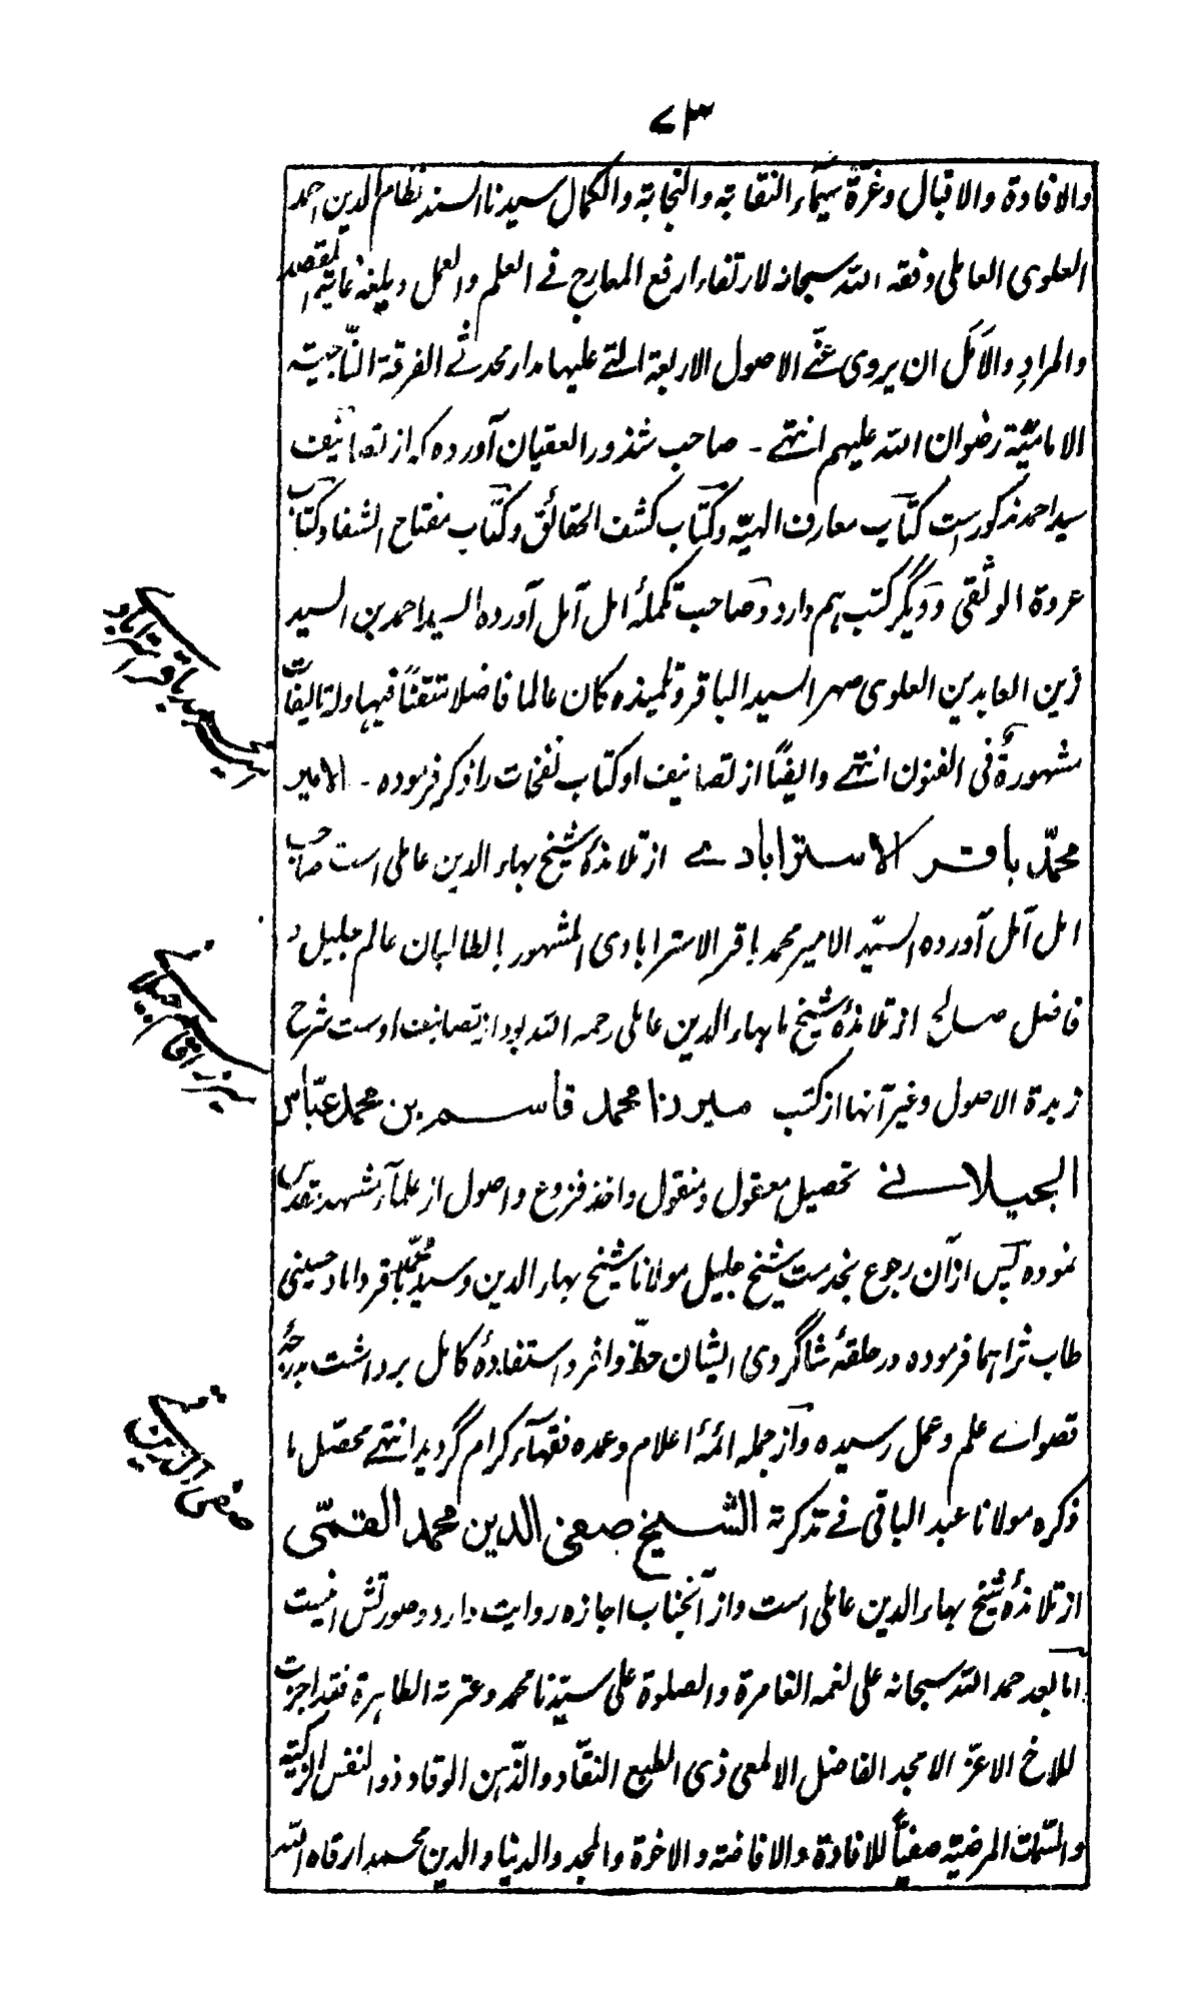 ۷۳
والافادة والاقبال وغرّة سیمآء النقابة والنجابة والکمال سیدنا السند نظام الدین احمد
العلوی العاملی وفقه الله سبحانه لارتقاء ارفع المعارج فے العلم والعمل وبلغه غایة المقصد
والمرادِ والاَمَل ان یروی عنّے الاصول الاربعة التے علیها مدار محدثے الفرقة النّاجیّة
الامامیّة رضوان الله علیهم انتهے - صاحب شذور العقیان آورده که از تصانیف
سید احمد مذکورست کتاب معارف الهیّه وکتاب کشف الحقائق وکتاب مفتاح الشفا وکتاب
عروة الوثقی ودیگر کتب هم دارد وصاحب تکملۀ امل آمل آورده السید احمد بن السید
زین العابدین العلوی صهر السید الباقر وتلمیذه کان عالما فاضلا متقنًا فیها وله تالیفات
مشهورةٌ فی الفنون انتهے وایضًا از تصانیف او کتاب نفخات را ذکر فرموده - الامیر
محمّد باقر الاسترابادے از تلامذۀ شیخ بهاء الدین عاملی است صاحب
امل آمل آورده السیّد الامیر محمد باقر الاسترابادی المشهور بالطالبان عالم جلیل
فاضل صالح از تلامذۀ شیخ ما بهاء الدین عاملی رحمه الله بود از تصانیف اوست شرح
زبدة الاصول وغیر آنها از کتب میرزا محمد قاسم بن محمد عبّاس
الجیلانے تحصیل معقول ومنقول واخذ فروع واصول از علمآء مشهد مقدس
نموده پس ازآن رجوع بخدمت شیخ جلیل مولانا شیخ بهاء الدین وسید محمّد باقر داماد حسینی
طاب ثراهما فرموده در حلقۀ شاگردی ایشان حظّ وافر واستفادۀ کامل برداشت بدرجۀ
قصواے علم وعمل رسیده واز جمله ائمۀ اعلام وعمده فقهآء کرام گردید انتهے محصّل ما
ذکره مولانا عبد الباقی فے تذکرته الشیخ صفی الدین محمد القمّی
از تلامذۀ شیخ بهاء الدین عاملی است واز آنجناب اجازه روایت دارد وصورتش اینست
اما بعد حمد الله سبحانه علی نعمه الغامرة والصلوة علی سیّدنا محمد وعترته الطاهرة فقد اجزت
للاخ الاعزّ الامجد الفاضل الالمعی ذی الطبع النقّاد والذّهن الوقاد ذو النفس الزکیّه
والسّمات المرضیّه صفیًّا للافادة والافاضه والاخرة والمجد والدنیا والدین محمد ارقاه الله
سید محمد باقر استرابادے
میرزا قاسم جیلانے
صفی الدین قمے